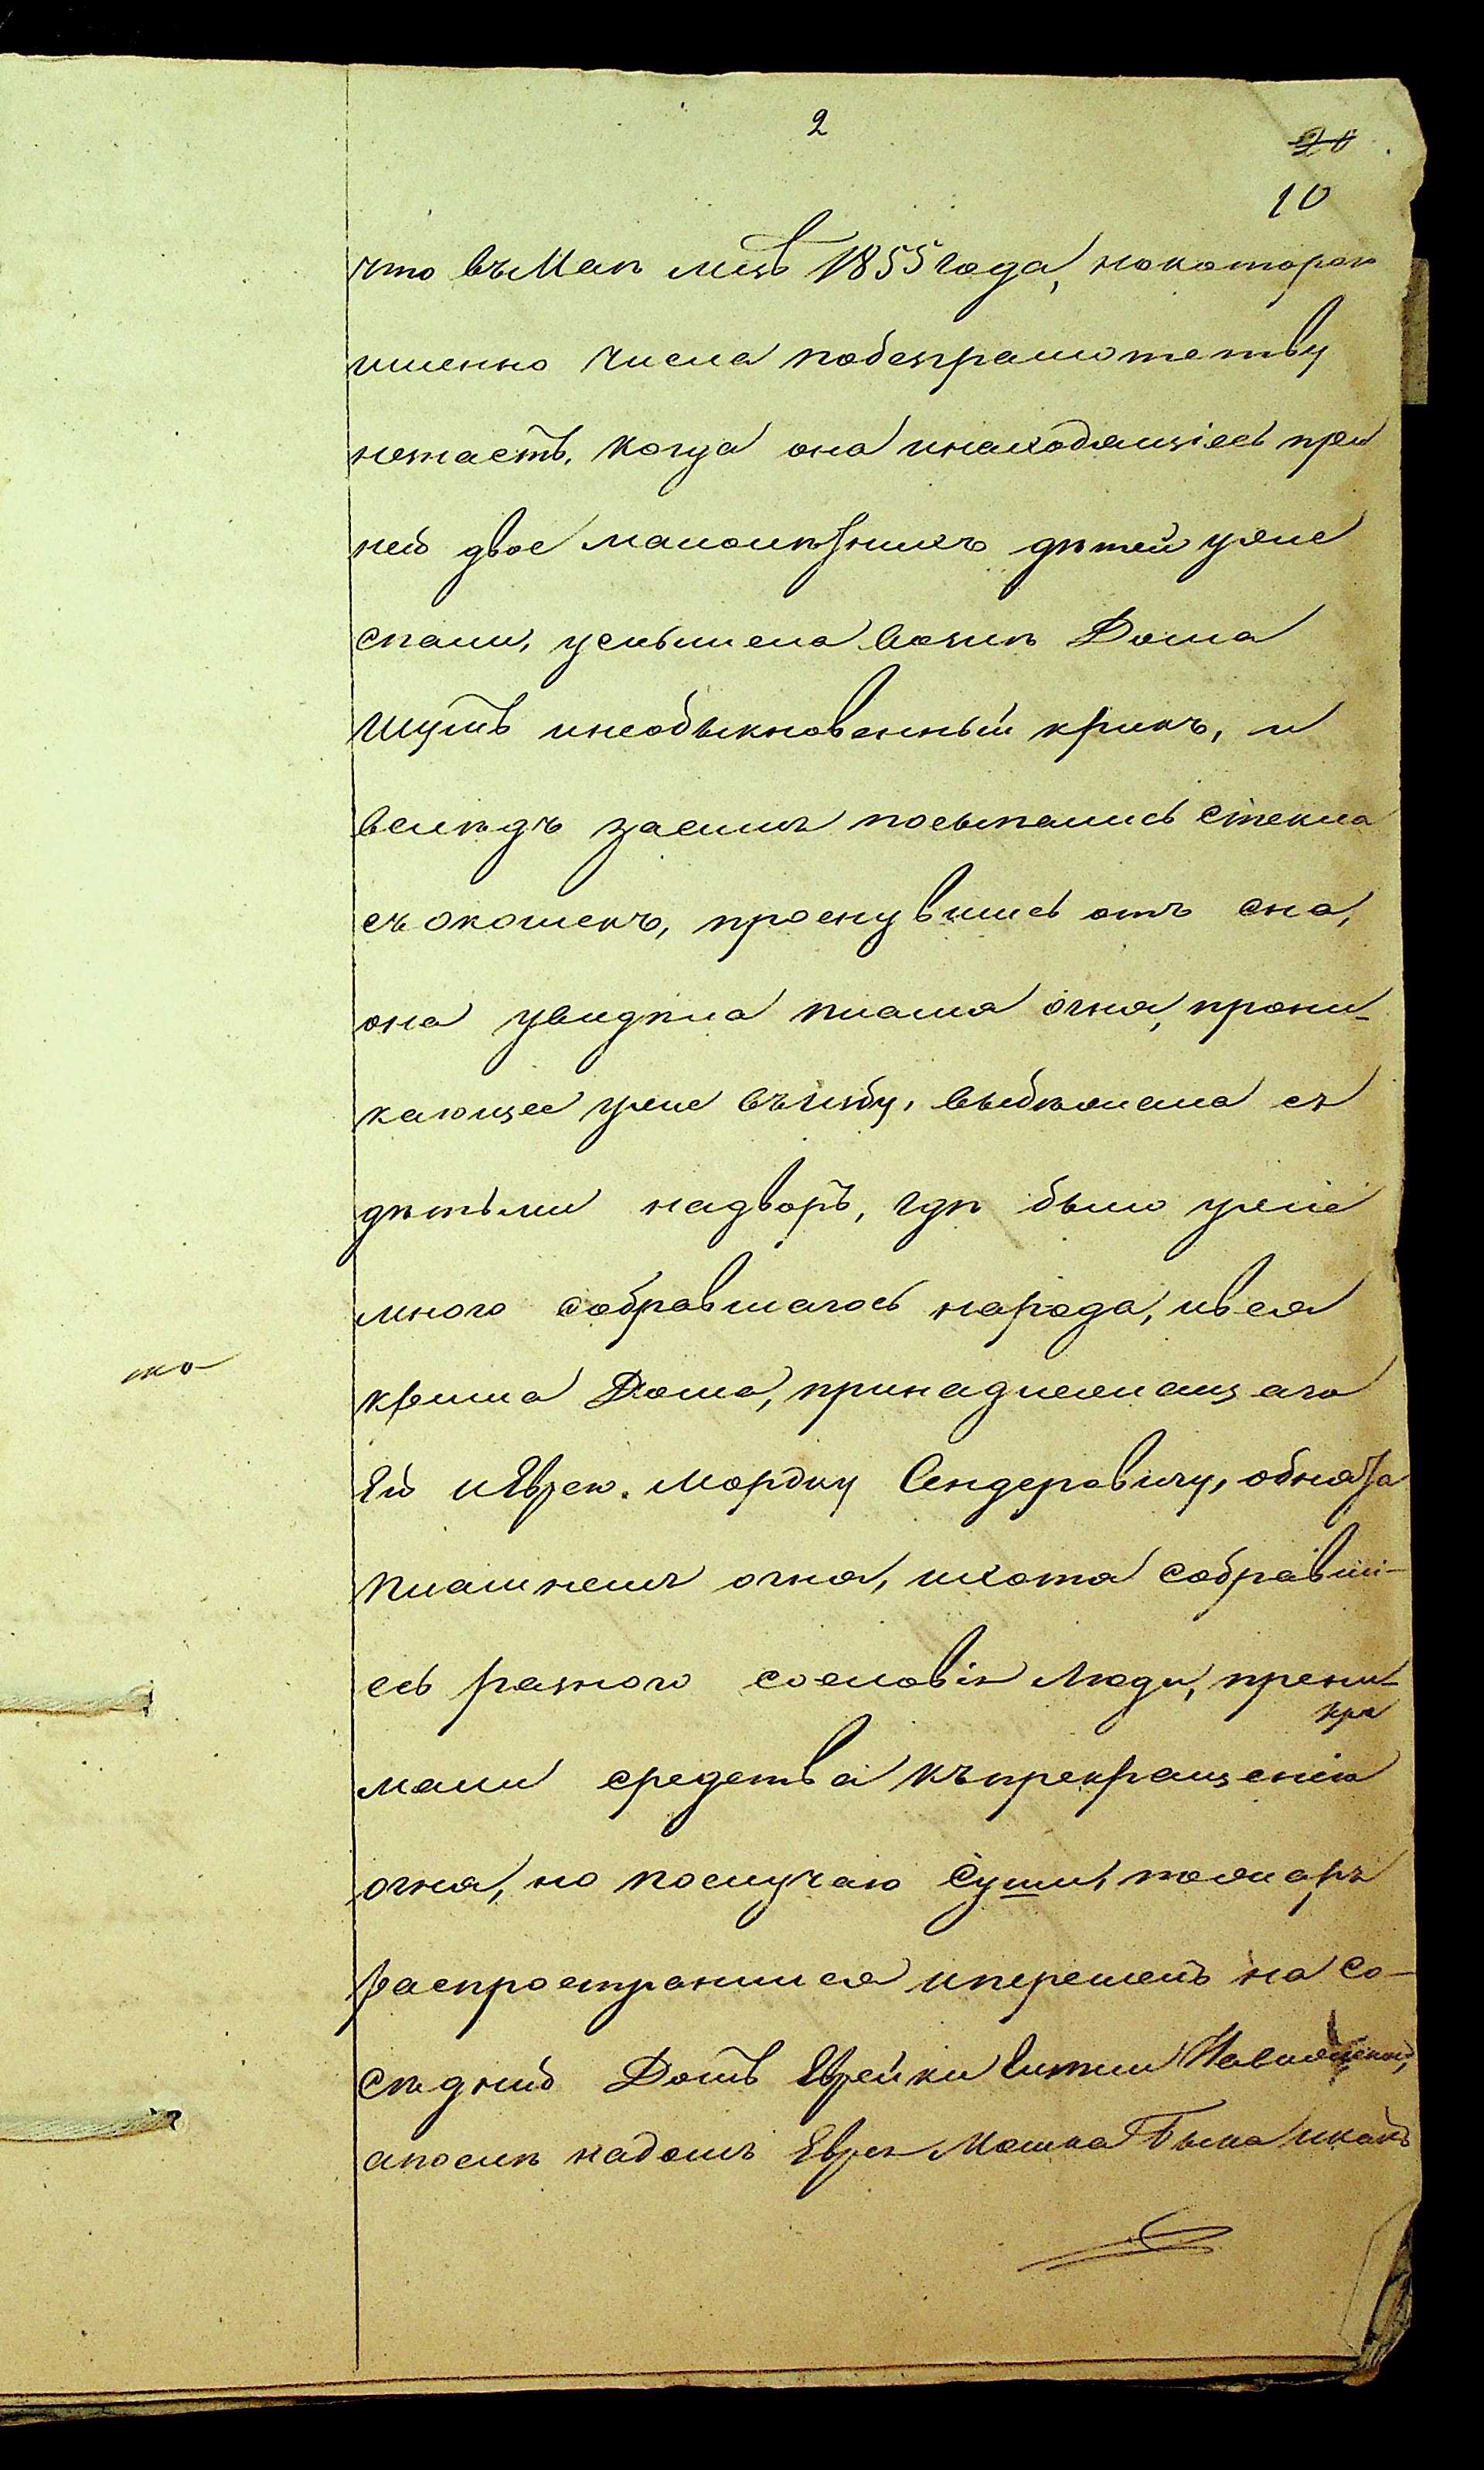 2
20
10
что въ Маѣ мцѣ 1855 года, но котораго
именно числа по безграмотству
незнаетъ, когда она и находящіесь при
ней двое малолѣтнихъ дѣтей уже
спали, услышела возлѣ Дома
шумъ и необыкновенный крикъ, и
вслѣдъ засимъ посыпались стекла
съ окошекъ, проснувшись отъ сна,
она увидѣла пламя огня, прони-
кающее уже въ избу, выбѣжала съ
дѣтьми на дворъ, гдѣ было уже
много собравшагось народа, и вся
то
крыша Дома, принадлежащаго
Ей и Еврею Мордку Сендеровичу, обнята
пламенемъ огня, и хотя собравші-
есь разного сословія люди, прени-
при
мали средства къ прекращенію
огня, но по случаю суши, пожаръ
распространился и перешелъ на со-
сѣдній Домъ Еврейки
а послѣ на домъ Еврея Мошка Быка и какъ